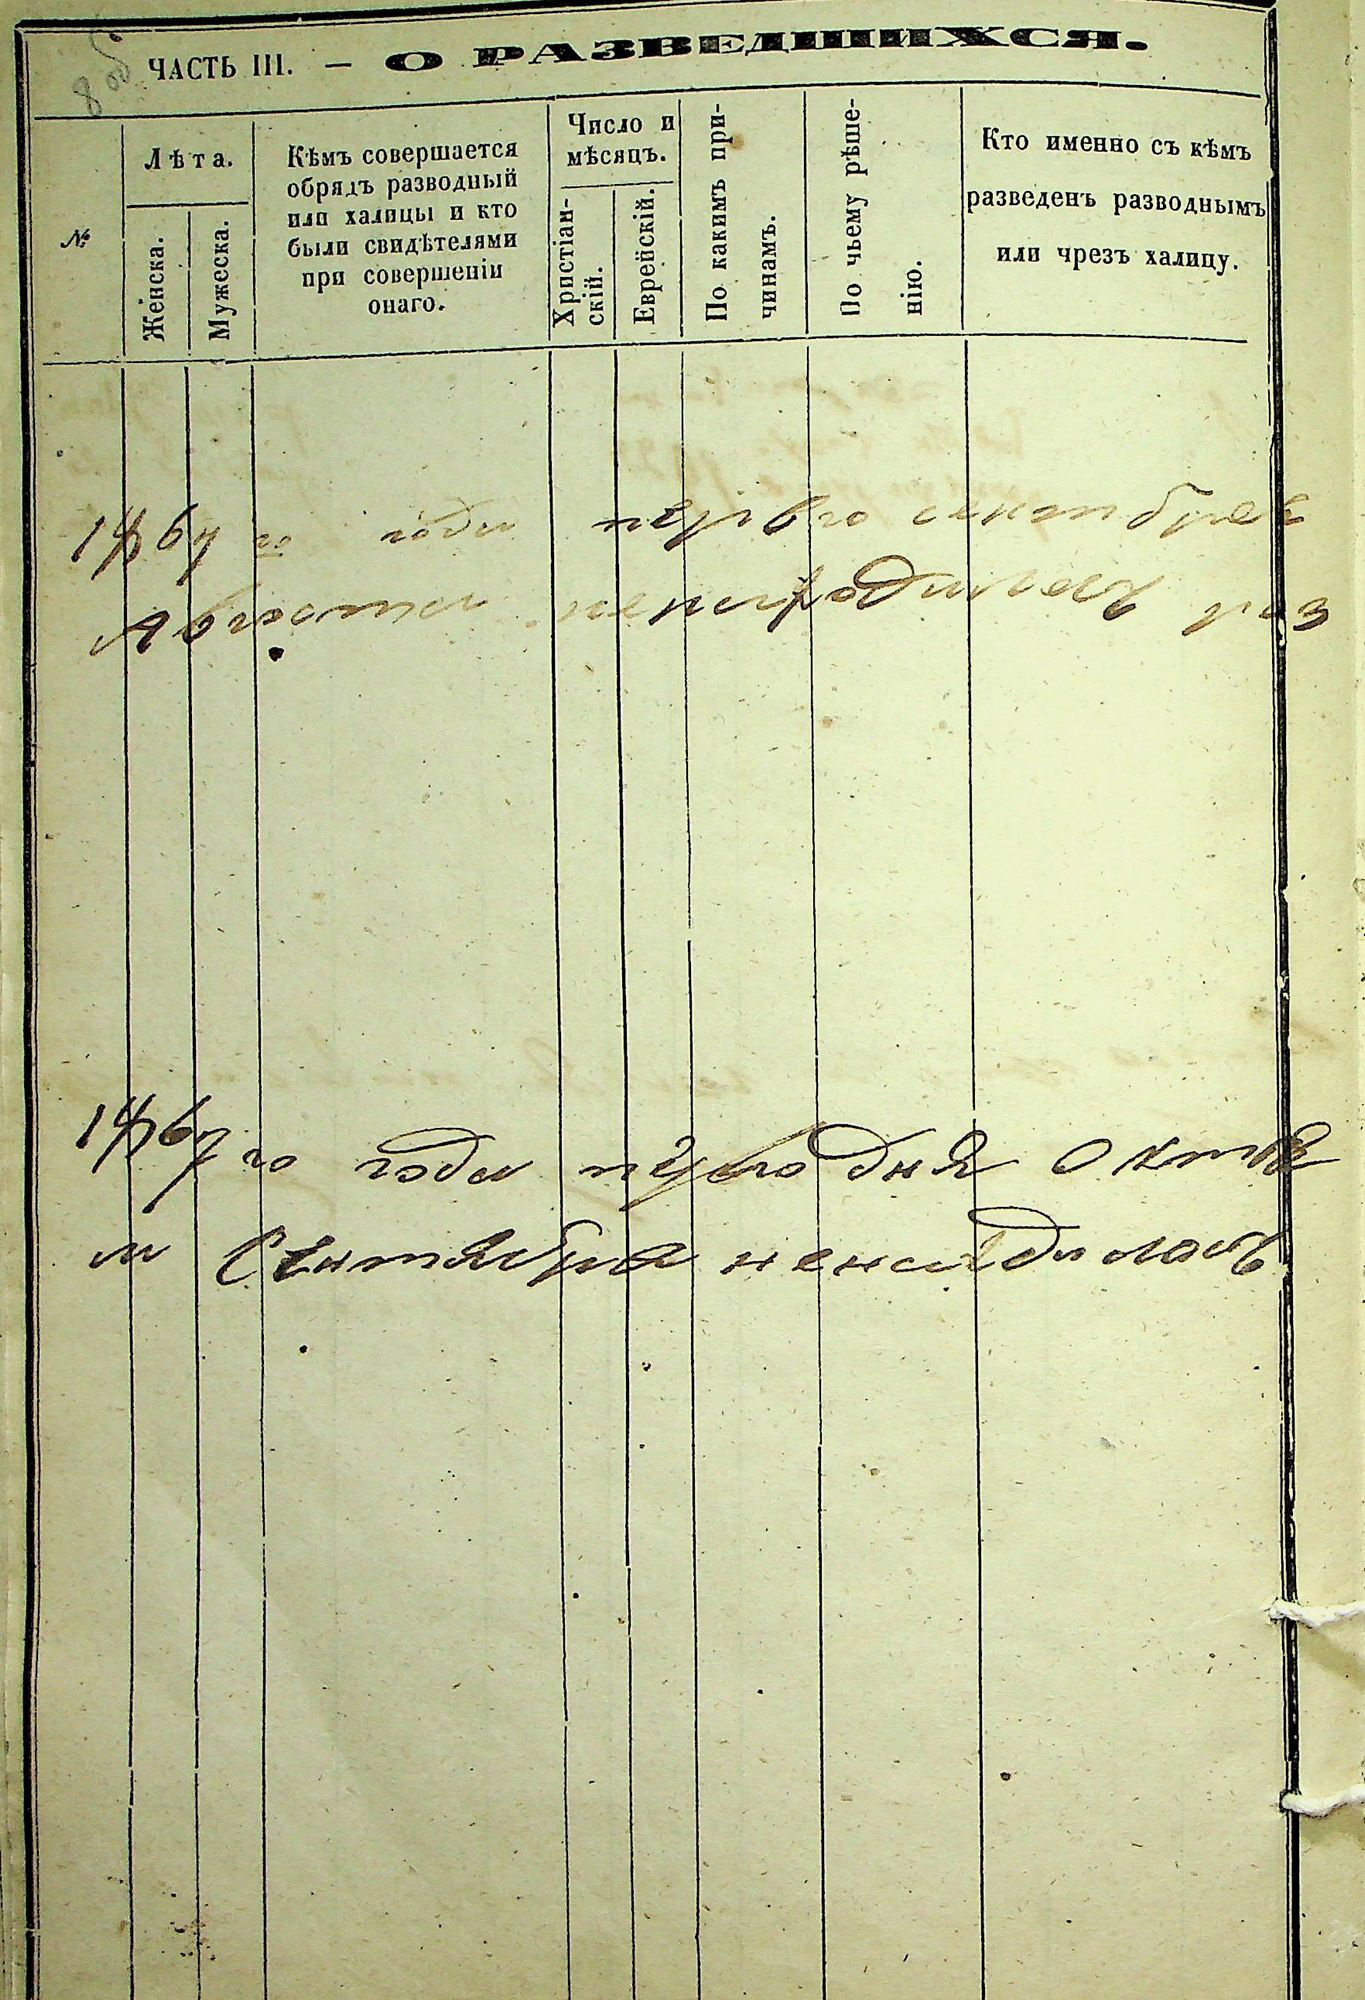 8 об
ЧАСТЬ III. — О РАЗВЕДШИХСЯ.
№
Лѣта.
Женска.
Мужеска.
Кѣмъ совершается
обрядъ разводный
или халицы и кто
были свидѣтелями
при совершеніи
онаго.
Число и
мѣсяцъ.
Христіан-
скій.
Еврейскій.
По какимъ при-
чинамъ.
По чьему рѣше-
нію.
Кто именно съ кѣмъ
разведенъ разводнымъ
или чрезъ халицу.
1867 го года перваго
Августа раз
1867 го года дня Октя
м Сентября